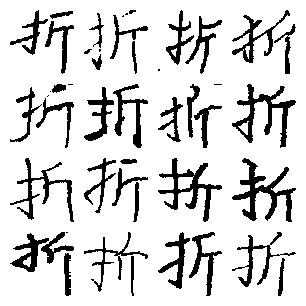 折折折折
折折折折
折折折折
折折折折